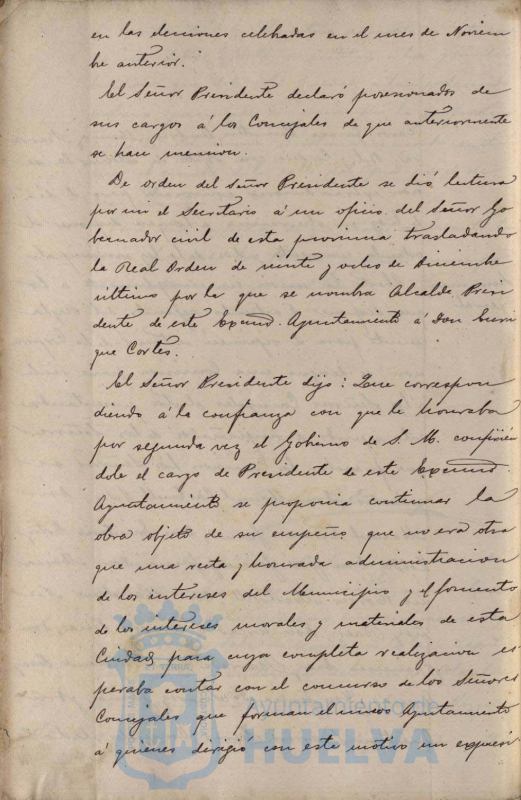 en las elecciones celebradas en el mes de Noviem
bre anterior.
El Señor Presidente declaró posesionados de
sus cargos á los Concejales de que anteriormente
se hace mencion.
De orden del Señor Presidente se dió lectura
por mi el Secretario á un oficio del Señor Go
bernador civil de esta provincia trasladando
la Real Orden de veinte y ocho de Diciembre
último por la que se nombra Alcalde Presi
dente de este Excmo. Ayuntamiento á Don Enri
que Cortés.
El Señor Presidente dijo: Que correspon
diendo á la confianza con que le honraba
por segunda vez el Gobierno de S. M. confirién
dole el cargo de Presidente de este Excmo.
Ayuntamiento se proponia continuar la
obra objeto de su empeño que no era otra
que una recta y honrada administracion
de los intereses del Municipio y el fomento
de los intereses morales y materiales de esta
Ciudad, para cuya completa realizacion es
peraba contar con el concurso de los Señores
Concejales que forman el nuevo Ayuntamiento
á quienes dirigió con este motivo un expresi
Ayuntamiento de
HUELVA